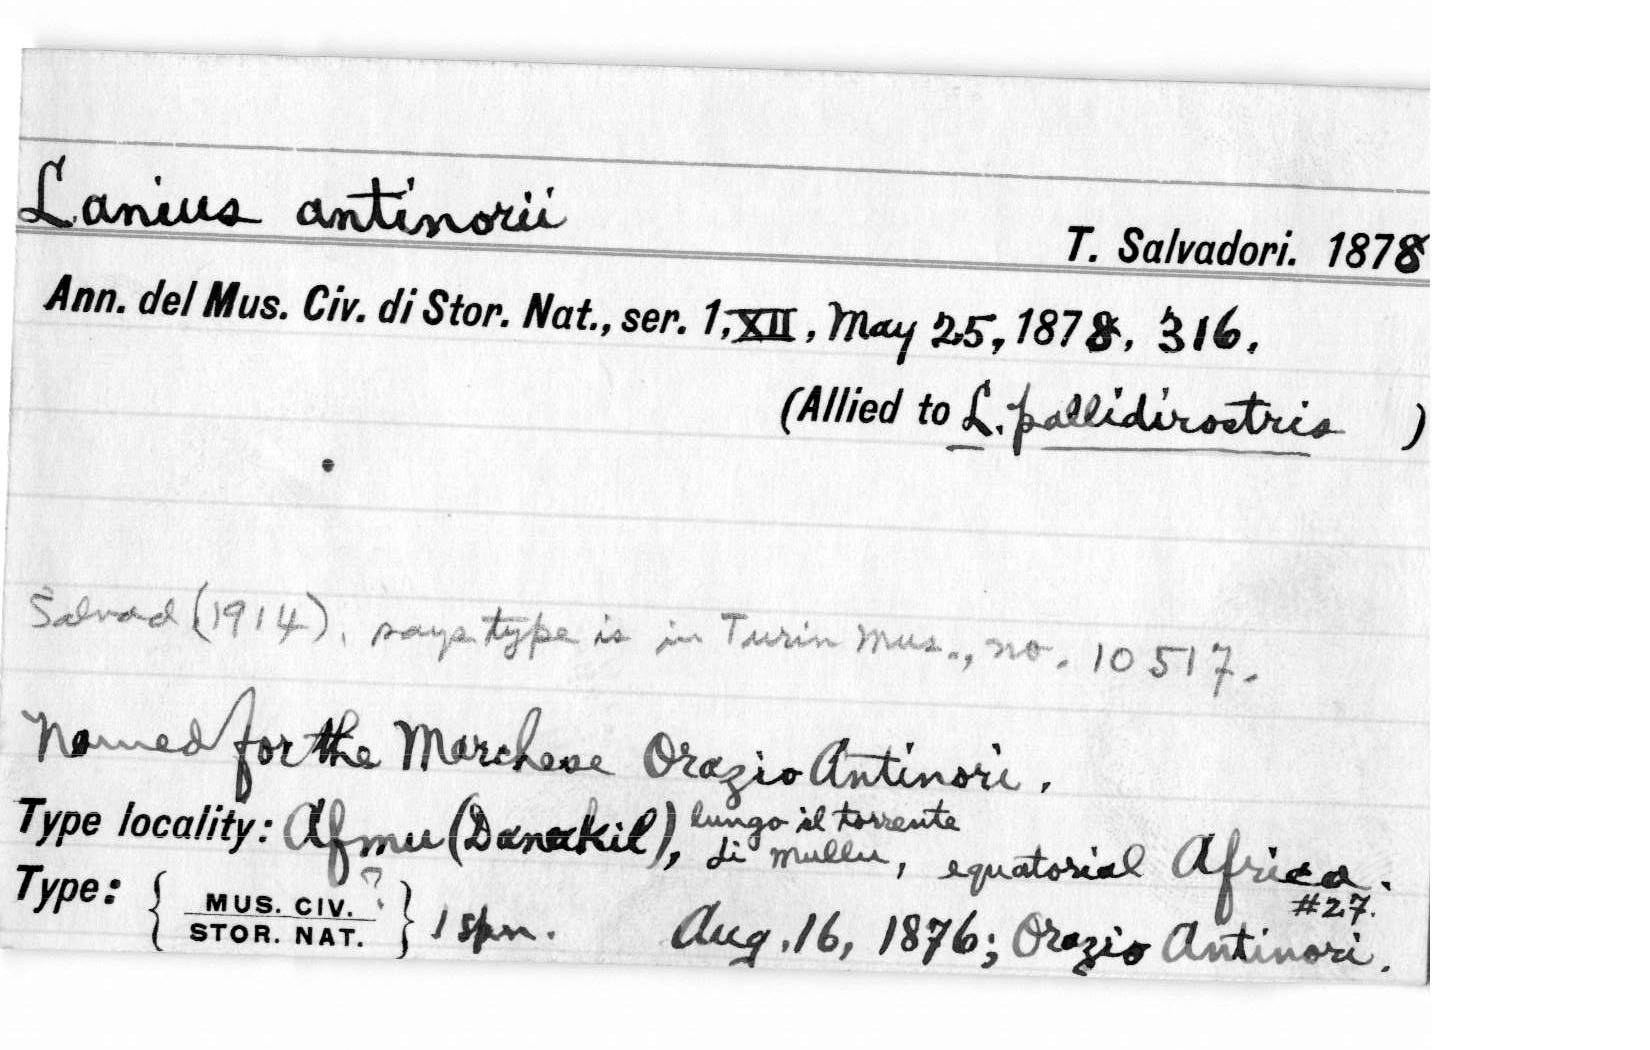 Lanius antinorii
T. Salvadori. 1878
Ann. del Mus. Civ. di Stor. Nat., ser. 1, XII, May 25, 1878, 316.
(Allied to L. pallidirostris )
Salvad (1914), says type is in Turin Mus., no. 10517.
Named for the Marchese Orazio Antinori.
Type locality: Afmu (Danakil), lungo il torrente
di Mullu, equatorial Africa.
#27.
Type: { MUS. CIV. ? } 1 spm. Aug. 16, 1876; Orazio Antinori.
STOR. NAT.